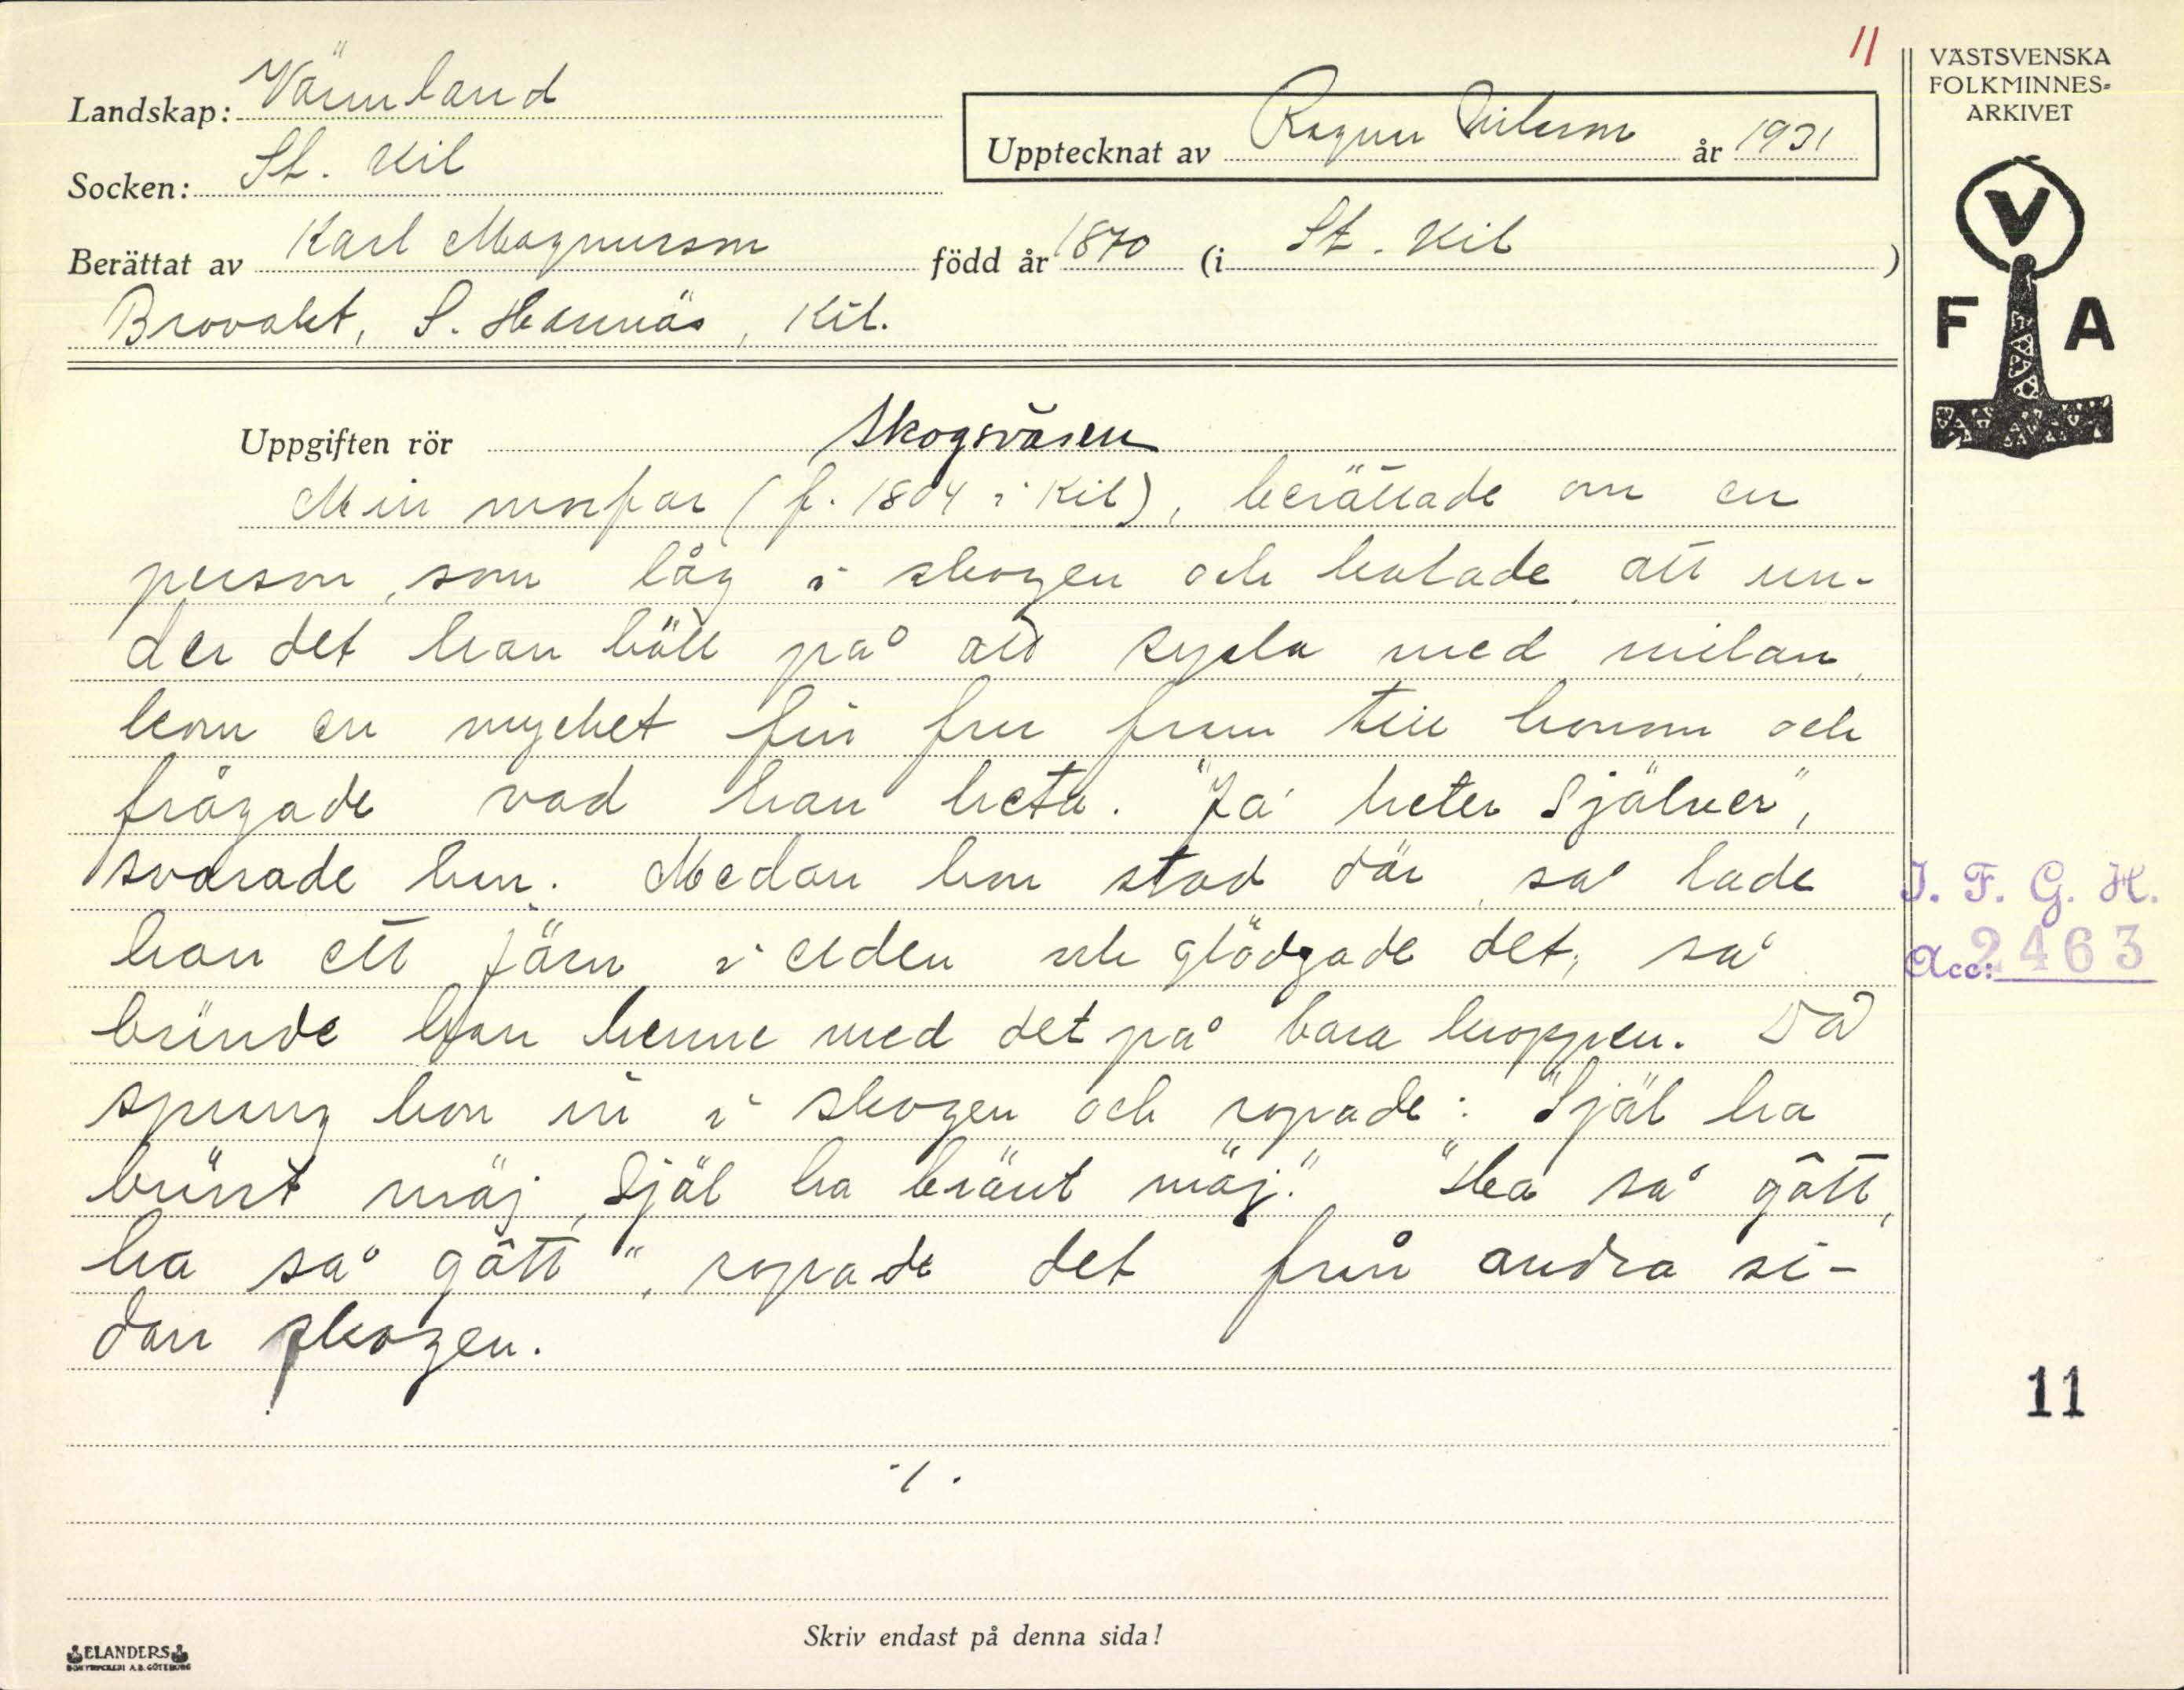 11
Landskap: Värmland
Socken: St. Kil
Upptecknat av Ragnar Nilsson år 1931
Berättat av Karl Magnusson född år 1870 (i St. Kil)
Brovaket, S. Hannäs, Kil.
VÄSTSVENSKA
FOLKMINNES-
ARKIVET
V
F A
Uppgiften rör Skogsväsen
Min morfar (f. 1804 i Kil), berättade om en
person, som låg i skogen och kolade, att un-
der det han höll på att syssla med milan,
kom en mycket fin fru fram till honom och
frågade vad han heta. "Ja' heter Själver",
svarade han. Medan hon stod där, så lade
han ett järn i elden och glödgade det, så
brände han henne med det på bara kroppen. Då
sprang hon in i skogen och ropade: "Själ ha
bränt mäj, Själ ha bränt mäj." "Ha så gått,
ha så gått", ropade det från andra si-
dan skogen.
./.
I. F. G. H.
Acc: 2463
11
Skriv endast på denna sida!
ELANDERS
BOKTRYCKERI A.B. GÖTEBORG